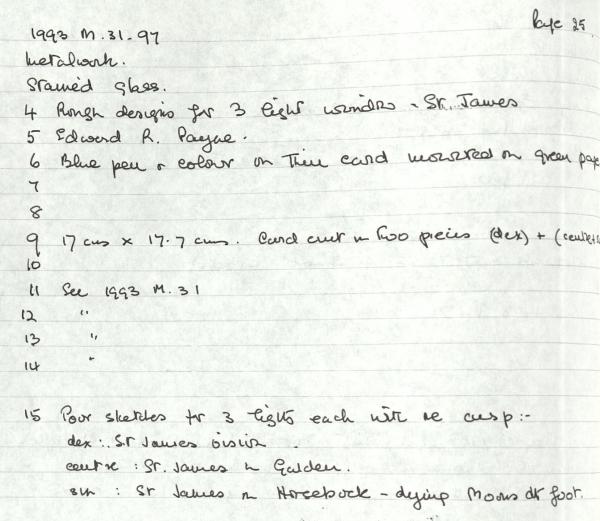 Page 25
1993 M.31-97
Metalwork.
Stained glass.
4 Rough designs for 3 light window - St. James
5 Edward R. Payne.
6 Blue pen & colour on thin card mounted on green pape
7
8
9 17 cms x 17.7 cms. Card cut in two pieces (dex) + (centre +
10
11 See 1993 M.31
12 "
13 "
14 "
15 Poor sketches for 3 lights each with re cusp:-
dex: St James
centre : St. James in Garden.
sin : St James on Horseback - dying Moors at foot.